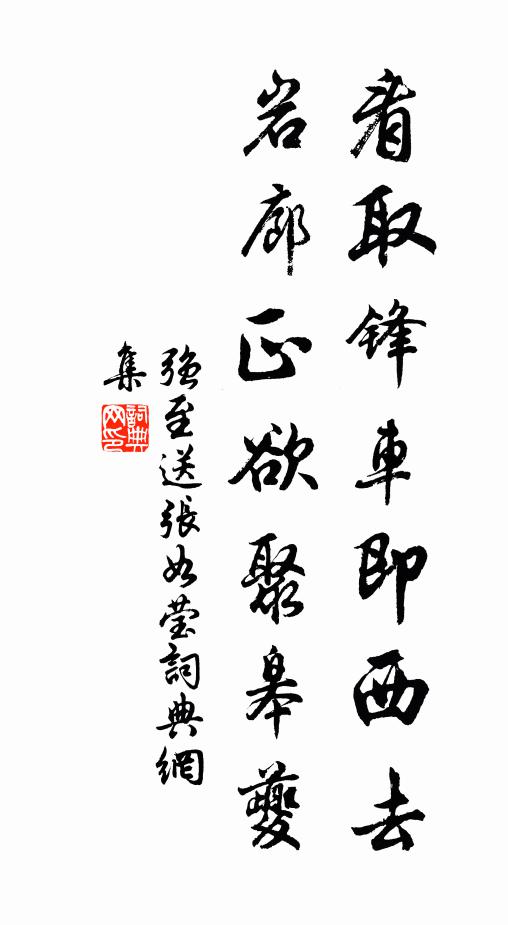 看取鋒車即西去
岩廊正欲聚皋夔
强至送張如瑩詞典網
集
詞典
网印